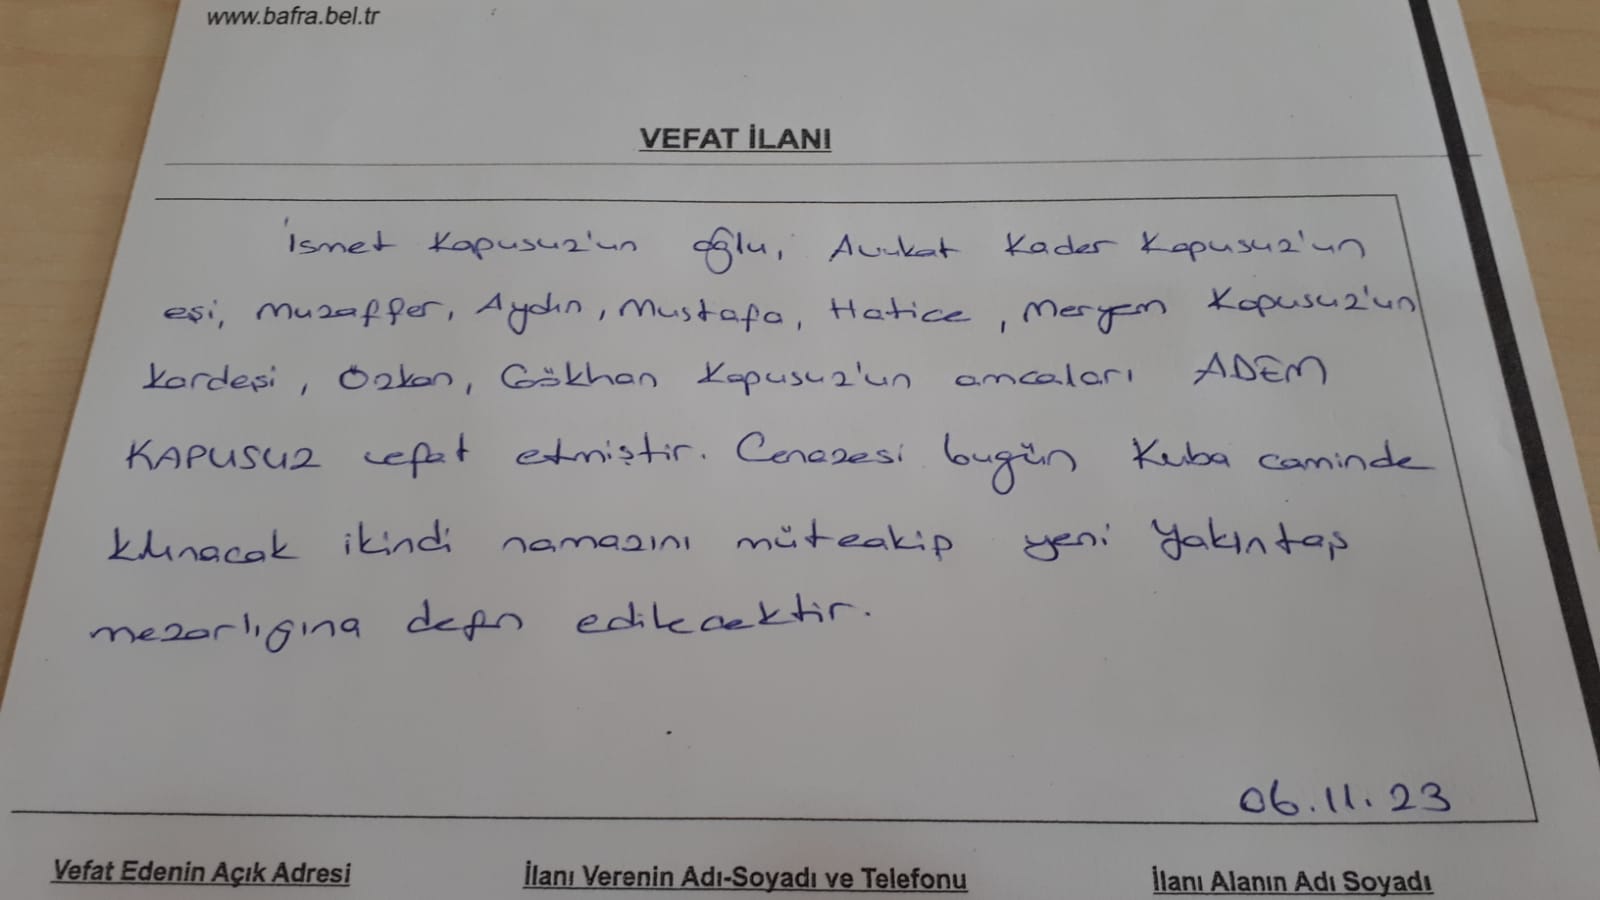 www.bafra.bel.tr
VEFAT İLANI
İsmet Kapusuz'un oğlu, Avukat Kader Kapusuz'un
eşi, Muzaffer, Aydın, Mustafa, Hatice, Meryem Kapusuz'un
kardeşi, Özkan, Gökhan Kapusuz'un amcaları ADEM
KAPUSUZ vefat etmiştir. Cenazesi bugün Kuba caminde
kılınacak ikindi namazını müteakip yeni Yakıntaş
mezarlığına defn edilecektir.
06.11.23
Vefat Edenin Açık Adresi İlanı Verenin Adı-Soyadı ve Telefonu İlanı Alanın Adı Soyadı